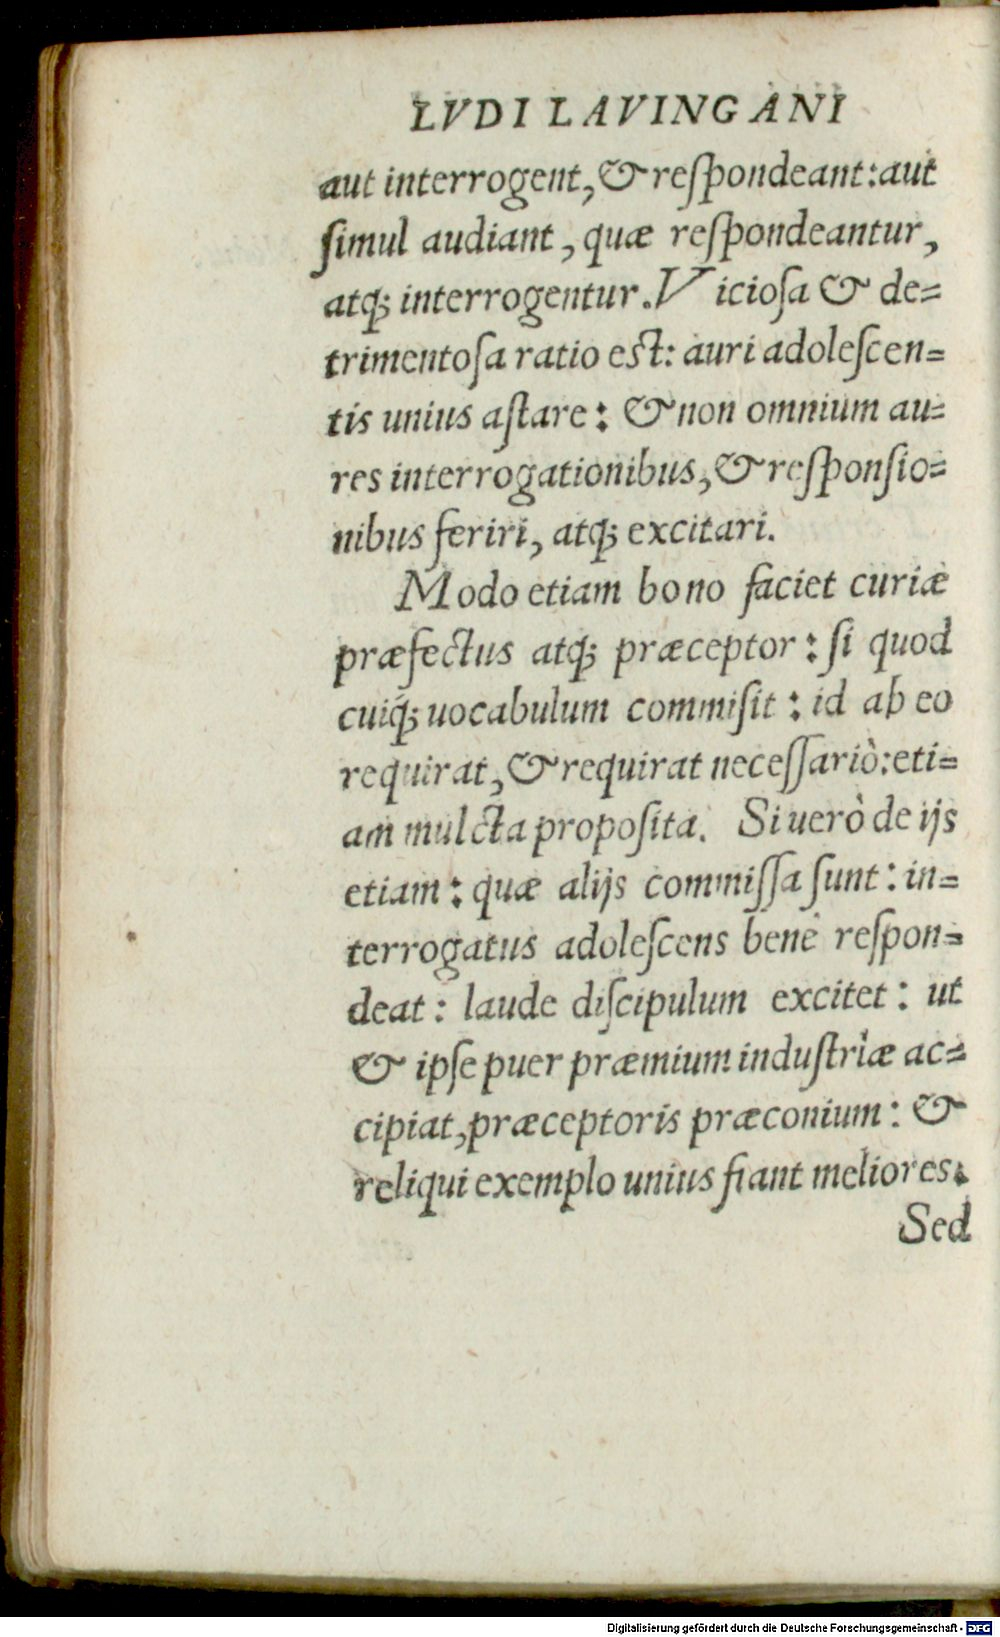 LVDI LAVINGANI
aut interrogent, & reſpondeant: aut
ſimul audiant, quæ reſpondeantur,
atq; interrogentur. Vicioſa & de=
trimentoſa ratio est: auri adoleſcen=
tis unius aſtare: & non omnium au=
res interrogationibus, & reſponſio=
nibus feriri, atq; excitari.
Modo etiam bono faciet curiæ
præfectus atq; præceptor: ſi quod
cuiq́; uocabulum commiſit: id ab eo
requirat, & requirat neceſſariò: eti=
am mulcta propoſita. Si uerò de ijs
etiam: quæ alijs commiſſa ſunt: in=
terrogatus adoleſcens benè reſpon=
deat: laude diſcipulum excitet: ut
& ipſe puer præmium induſtriæ ac=
cipiat, præceptoris præconium: &
reliqui exemplo unius fiant meliores.
Sed
Digitalisierung gefördert durch die Deutsche Forschungsgemeinschaft - DFG